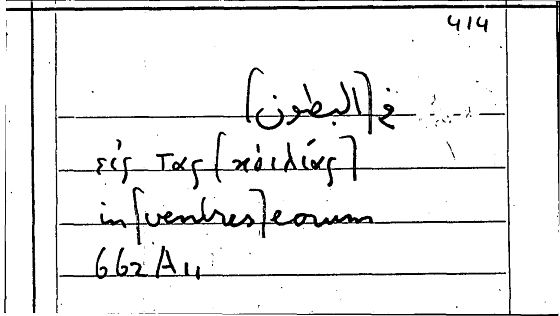 414
في [البطون]
εἰς τας [κοιλίας]
in [ventres] eorum
662 A 11